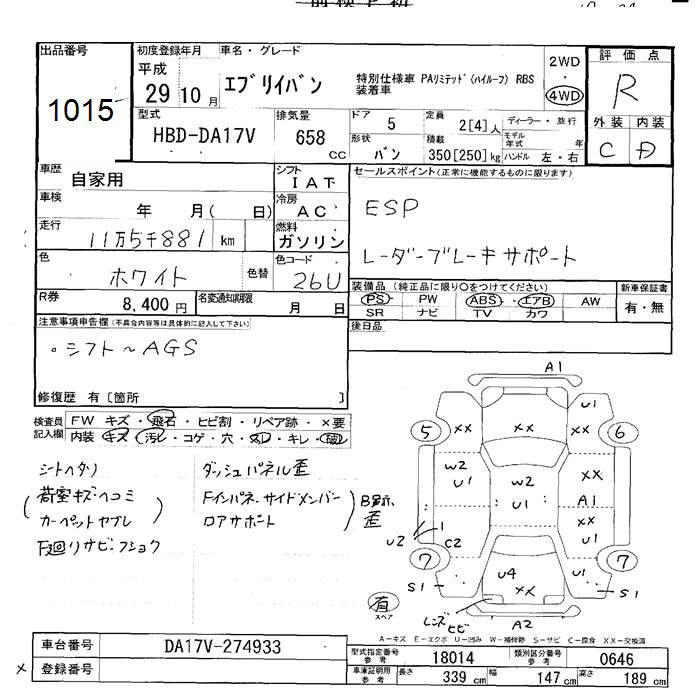 出品番号
1015
初度登録年月
平成
29 10 月
車名・グレード
エブリイバン
特別仕様車 PAリミテッド(ハイルーフ) RBS
装着車
2WD
・
4WD
評価点
R
外装 内装
C D
型式
HBD-DA17V
排気量
658
CC
ドア
5
形状
バン
定員
2[4]人
積載
350[250]kg
ディーラー・並行
モデル
年式 年
ハンドル 左・右
車歴
自家用
シフト
IAT
車検
年 月( 日)
冷房
AC
走行
11万5千881 km
燃料
ガソリン
色
ホワイト
色替
色コード
26U
R券
8,400円
名変通知期限
月 日
セールスポイント(正常に機能するものに限ります)
ESP
レーダーブレーキサポート
装備品(純正品に限り○をつけてください)
PS・PW・ABS・エアB・AW
SR ナビ TV カワ
新車保証書
有・無
後日品
注意事項申告欄(不具合内容等は具体的に記入して下さい)
・シフト〜AGS
修復歴 有〔箇所 〕
検査員
記入欄
FW キズ・飛石・ヒビ割・リペア跡・×要
内装 キズ・汚レ・コゲ・穴・スレ・キレ・
シートヘタリ
荷室キズ・ヘコミ
カーペットヤブレ
下廻りサビ・フショク
ダッシュパネル歪
Fインパネ・サイドメンバー
ロアサポート
歪
A1
U1
5
XX
XX
XX
6
W2
U1
W2
U1
XX
A1
XX
U1
U2
1
C2
7
7
S1
U4
XX
U1
S1
有
スペア
レンズ
ヒビ
A2
A-キズ E-エクボ U-凹み W-補修跡 S-サビ C-腐食 XX-交換済
車台番号
DA17V-274933
× 登録番号
型式指定番号
参考
18014
類別区分番号
参考
0646
車庫証明用
参考
長さ
339 cm
幅
147 cm
高さ
189 cm